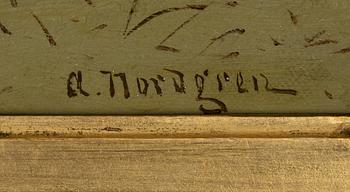 a. Nordgren